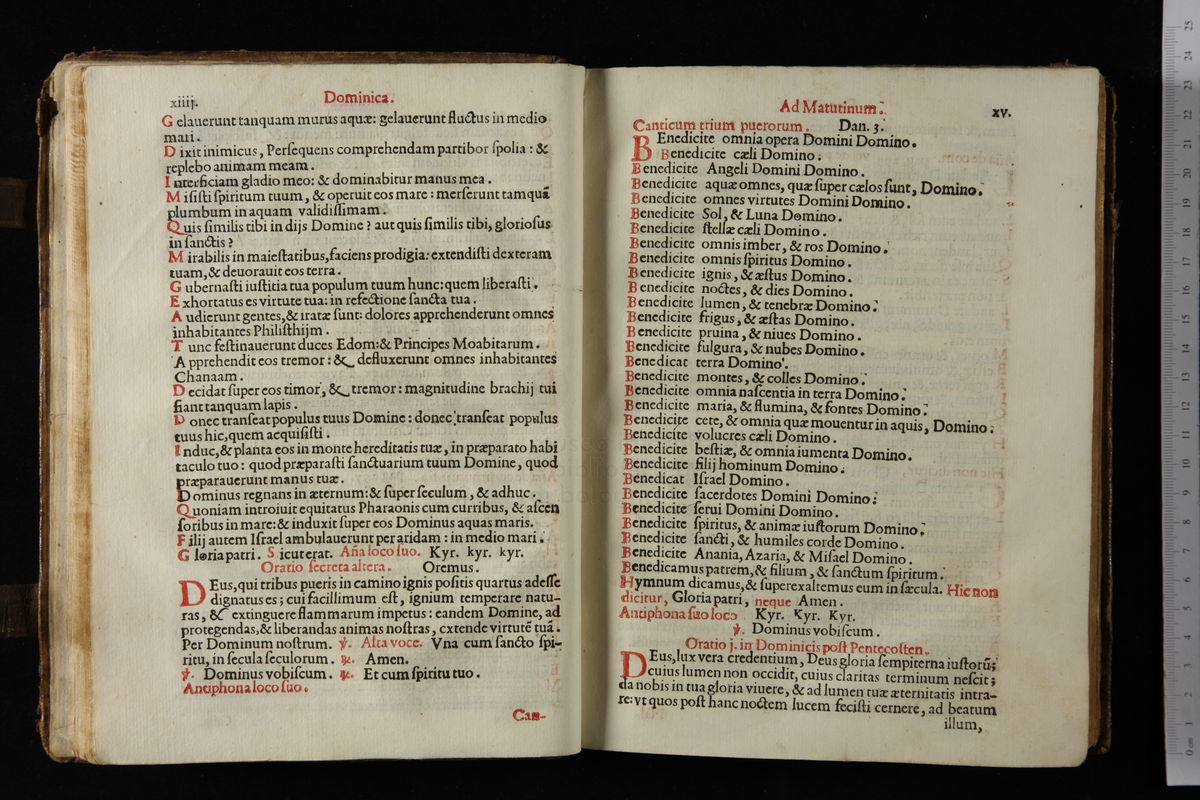 xiiij.
Dominica.
Gelauerunt tanquam murus aquæ: gelauerunt fluctus in medio
mari.
Dixit inimicus, Persequens comprehendam partibor spolia: &
replebo animam meam.
Interficiam gladio meo: & dominabitur manus mea.
Misisti spiritum tuum, & operuit eos mare: merserunt tamquã
plumbum in aquam validissimam.
Quis similis tibi in dijs Domine? aut quis similis tibi, gloriosus
in sanctis?
Mirabilis in maiestatibus, faciens prodigia: extendisti dexteram
tuam, & deuorauit eos terra.
Gubernasti iustitia tua populum tuum hunc: quem liberasti.
Exhortatus es virtute tua: in refectione sancta tua.
Audierunt gentes, & iratæ sunt: dolores apprehenderunt omnes
inhabitantes Philisthijm.
Tunc festinauerunt duces Edom: & Principes Moabitarum.
Apprehendit eos tremor: & defluxerunt omnes inhabitantes
Chanaam.
Decidat super eos timor, & tremor: magnitudine brachij tui
fiant tanquam lapis.
Donec transeat populus tuus Domine: donec transeat populus
tuus hic, quem acquisisti.
Induc, & planta eos in monte hereditatis tuæ, in præparato habi
taculo tuo: quod præparasti sanctuarium tuum Domine, quod
præparauerunt manus tuæ.
Dominus regnans in æternum: & super seculum, & adhuc.
Quoniam introiuit equitatus Pharaonis cum curribus, & ascen
soribus in mare: & induxit super eos Dominus aquas maris.
Filij autem Israel ambulauerunt per aridam: in medio mari.
Gloria patri. Sicut erat. Aña loco suo. Kyr. kyr. kyr.
Oratio secreta altera. Oremus.
DEus, qui tribus pueris in camino ignis positis quartus adesse
dignatus es; cui facillimum est, ignium temperare natu-
ras, & extinguere flammarum impetus: eandem Domine, ad
protegendas, & liberandas animas nostras, extende virtutẽ tuã.
Per Dominum nostrum. ℣. Alta voce. Vna cum sancto spi-
ritu, in secula seculorum. ℟. Amen.
℣. Dominus vobiscum. ℟. Et cum spiritu tuo.
Antiphona loco suo.
Can-
Ad Matutinum.
xv.
Canticum trium puerorum. Dan. 3.
BEnedicite omnia opera Domini Domino.
Benedicite cæli Domino.
Benedicite Angeli Domini Domino.
Benedicite aquæ omnes, quæ super cælos sunt, Domino.
Benedicite omnes virtutes Domini Domino.
Benedicite Sol, & Luna Domino.
Benedicite stellæ cæli Domino.
Benedicite omnis imber, & ros Domino.
Benedicite omnis spiritus Domino.
Benedicite ignis, & æstus Domino.
Benedicite noctes, & dies Domino.
Benedicite lumen, & tenebræ Domino.
Benedicite frigus, & æstas Domino.
Benedicite pruina, & niues Domino.
Benedicite fulgura, & nubes Domino.
Benedicat terra Domino.
Benedicite montes, & colles Domino.
Benedicite omnia nascentia in terra Domino.
Benedicite maria, & flumina, & fontes Domino.
Benedicite cete, & omnia quæ mouentur in aquis, Domino.
Benedicite volucres cæli Domino.
Benedicite bestiæ, & omnia iumenta Domino.
Benedicite filij hominum Domino.
Benedicat Israel Domino.
Benedicite sacerdotes Domini Domino.
Benedicite serui Domini Domino.
Benedicite spiritus, & animæ iustorum Domino.
Benedicite sancti, & humiles corde Domino.
Benedicite Anania, Azaria, & Misael Domino.
Benedicamus patrem, & filium, & sanctum spiritum.
Hymnum dicamus, & superexaltemus eum in sæcula. Hic non
dicitur, Gloria patri, neque Amen.
Antiphona suo loco Kyr. Kyr. Kyr.
℣. Dominus vobiscum.
Oratio j. in Dominicis post Pentecosten.
DEus, lux vera credentium, Deus gloria sempiterna iustorũ;
cuius lumen non occidit, cuius claritas terminum nescit;
da nobis in tua gloria viuere, & ad lumen tuæ æternitatis intra-
re: vt quos post hanc noctem lucem fecisti cernere, ad beatum
illum,